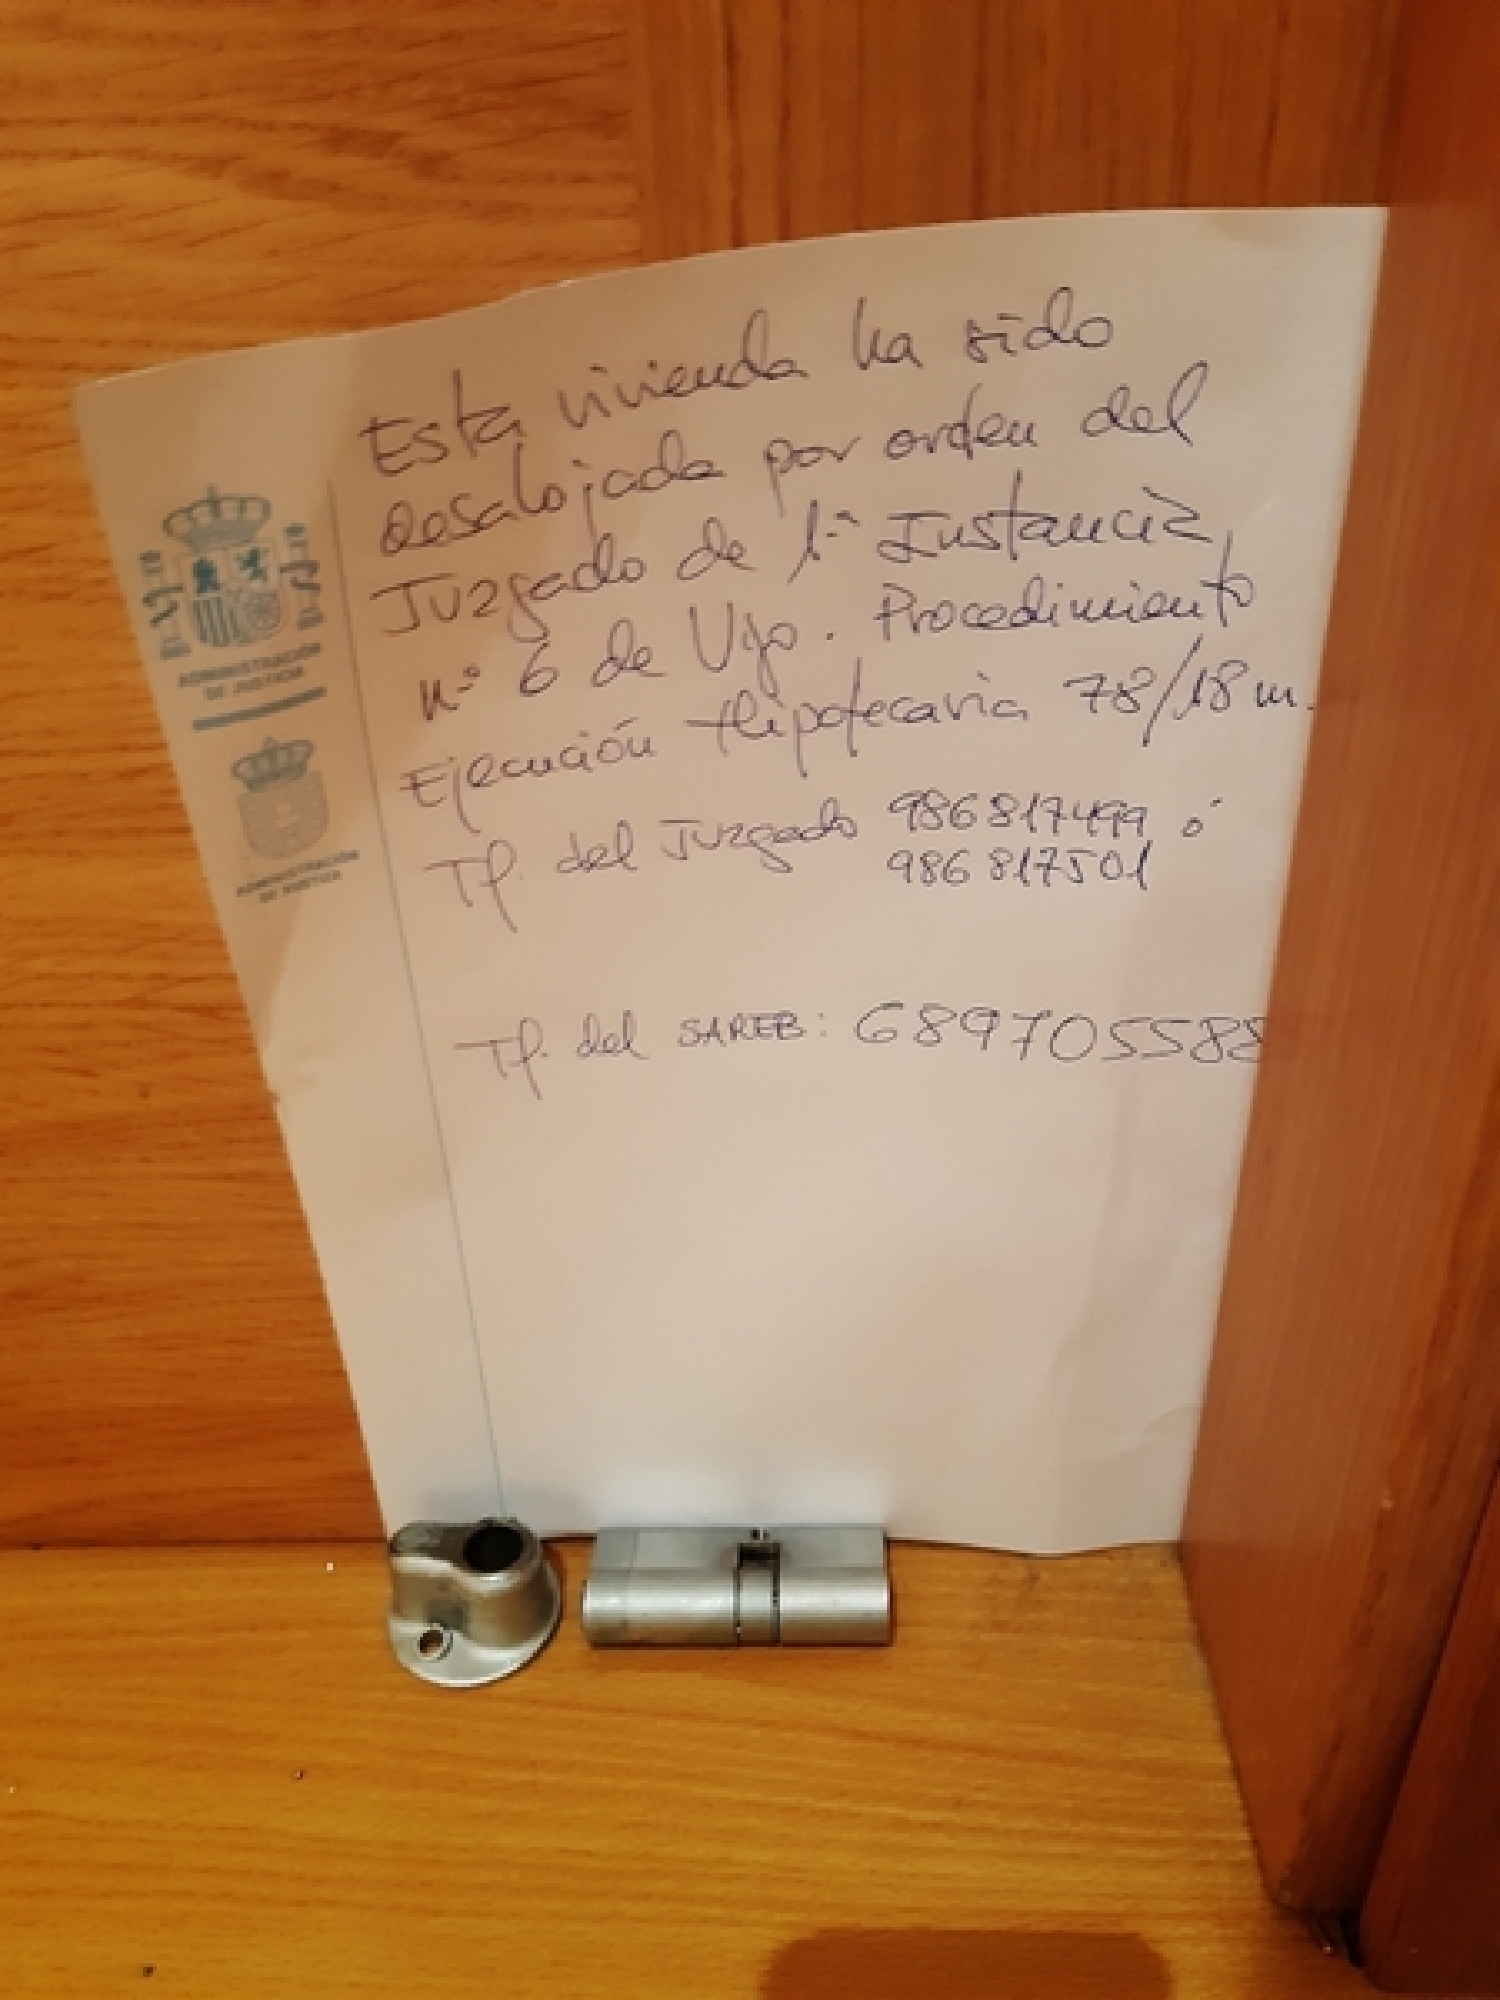 Esta vivienda ha sido
desalojada por orden del
Juzgado de 1ª Instancia
nº 6 de Vigo. Procedimiento
Ejecución Hipotecaria 78/18 m.
Tf. del Juzgado 986817499 ó
986817501
Tf. del SAREB: 689705588
ADMINISTRACIÓN
DE JUSTICIA
ADMINISTRACIÓN
DE XUSTIZA